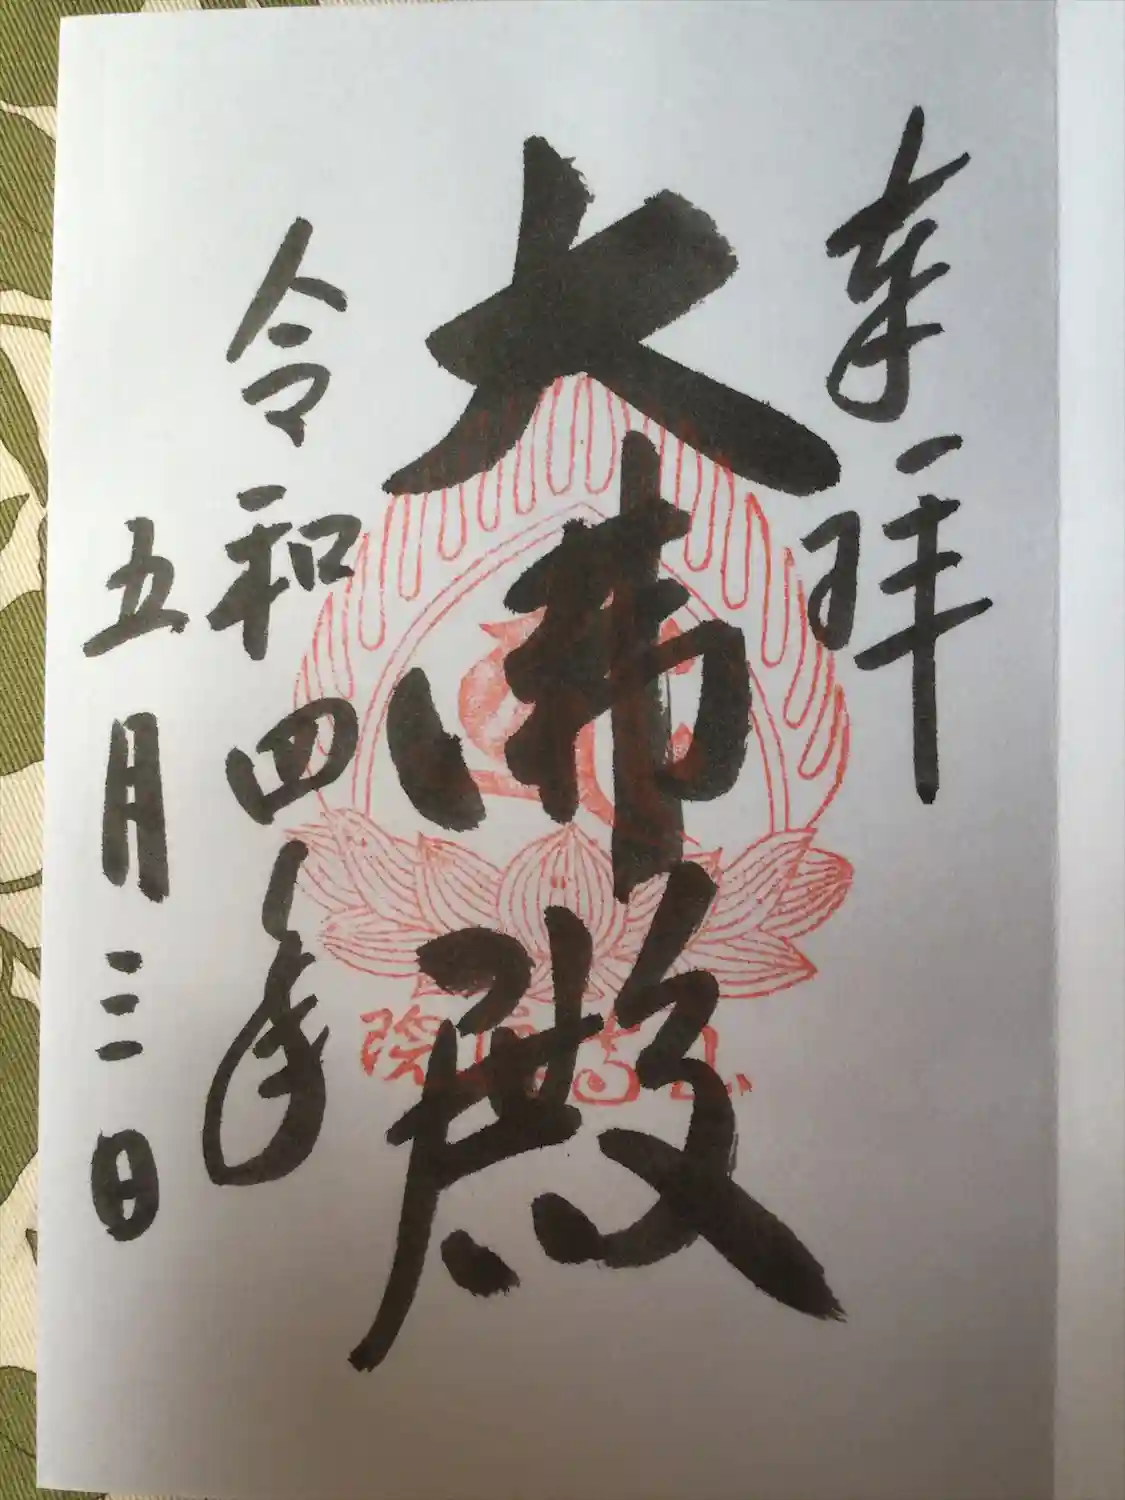 奉拝
大佛殿
令和四年
五月三日